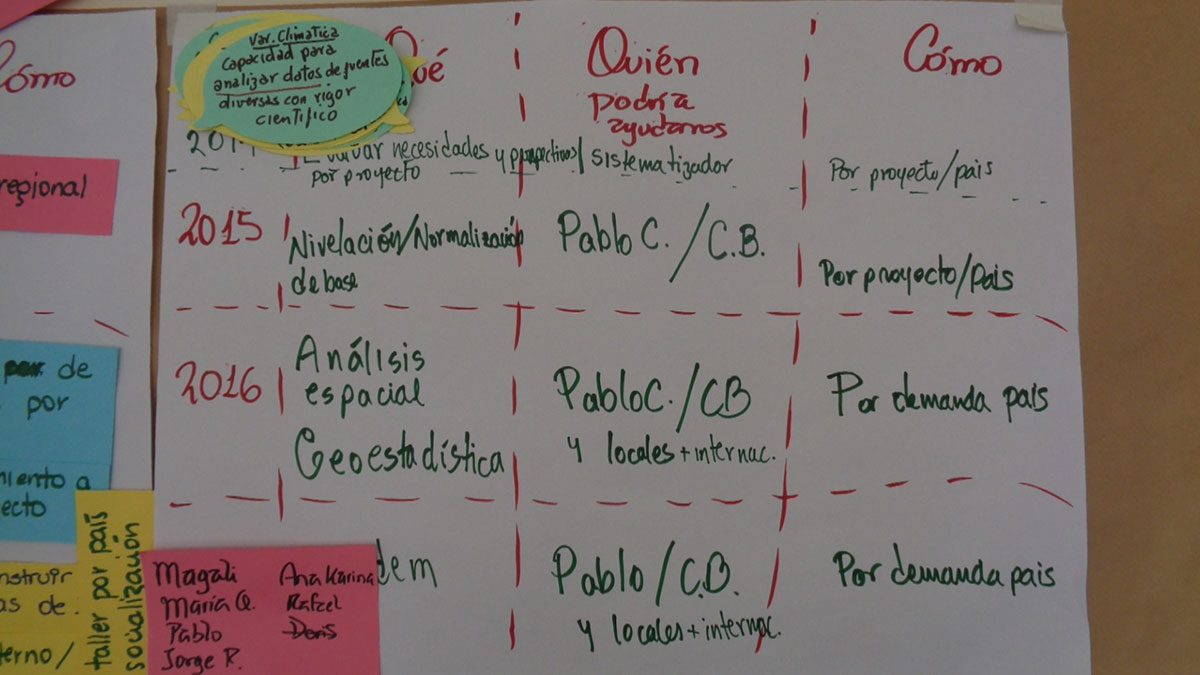 Cómo
regional
de
por
a
ecto
taller por país
socialización
as de.
erno/
Var. Climatica
capacidad para
analizar datos de fuentes
diversas con rigor
cientifico
Qué
Quién
podría
ayudarnos
Cómo
necesidades y
por proyecto
sistematizador
Por proyecto/pais
2015
Nivelación/Normalización
de base
Pablo C. / C.B.
Por proyecto/pais
2016
Análisis
espacial
Geoestadística
Pablo C. / CB
y locales + internac.
Por demanda pais
dem
Pablo / C.B.
y locales + internac.
Por demanda pais
Magali
Maria Q.
Pablo
Jorge R.
Ana Karina
Rafael
Doris